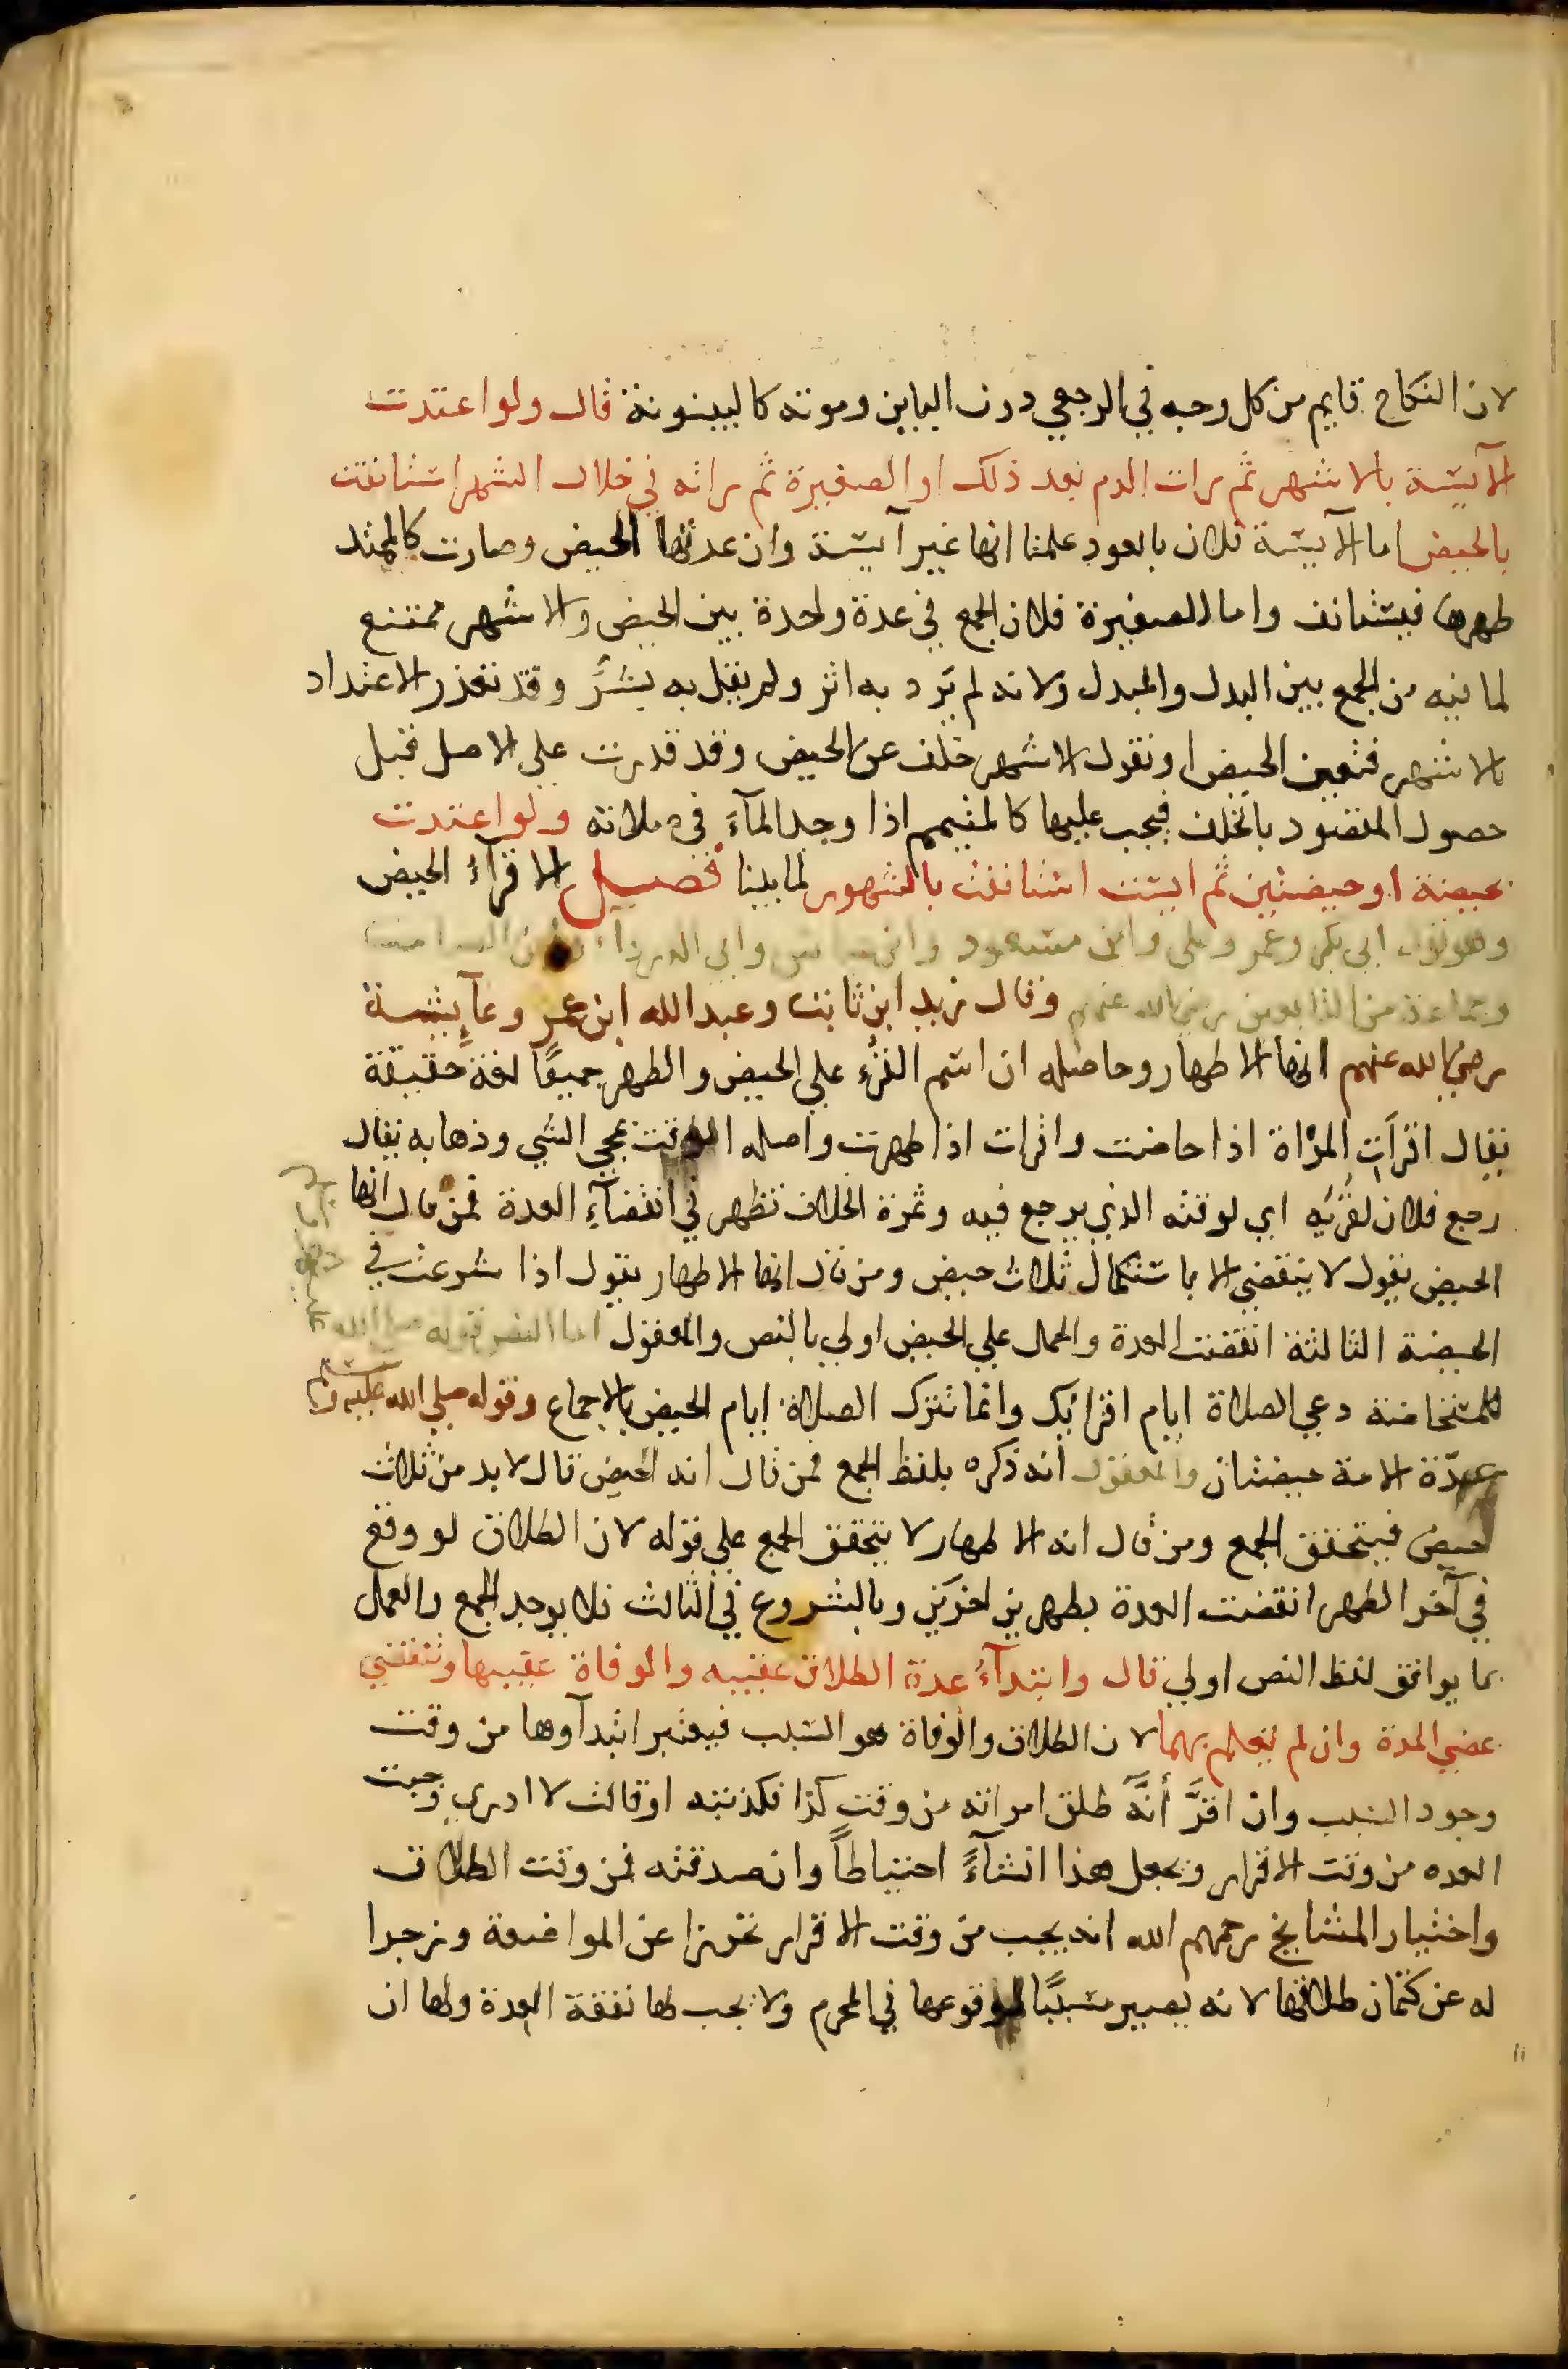 لان النكاح قايم من كل وجه في الرجعي دون الباين وموته كالبينونة قال ولو اعتدت
الآيسة بالاشهر ثم رات الدم بعد ذلك او الصغيرة ثم راته في خلال الشهر استانفت
بالحيض اما الآيسة فلان بالعود علمنا انها غير آيسة وان عدتها الحيض وصارت كالممتد
طهرها فيستانف واما الصغيرة فلان الجمع في عدة واحدة بين الحيض والاشهر ممتنع
لما فيه من الجمع بين البدل والمبدل ولانه لم يَرد به اثر ولم يقل به بشرٌ وقد تعذر الاعتداد
بالاشهر فتعين الحيض او نقول الاشهر خلف عن الحيض وقد قدرت على الاصل قبل
حصول المقصود بالخلف فيجب عليها كالمتيمم اذا وجد المآء في صلاته ولو اعتدت
بحيضة او حيضتين ثم ايست استانفت بالشهور لما بينا فصل الاقرآءُ الحيض
وهو قول ابي بكر وعمر وعلي وابن مسعود وابن عباس وابي الدردآء
وجماعة من التابعين رضي الله عنهم وقال زيد ابن ثابت وعبد الله ابن عمر وعآيشة
رضي الله عنهم انها الاطهار وحاصله ان اسم القُرْءِ على الحيض والطهر جميعًا لغة حقيقة
يقال اقرأتِ المرْاة اذا حاضت واقرات اذا طهرت واصله الوقت لمجي الشي وذهابه يقال
رجع فلان لقُرْئِه اي لوقته الذي يرجع فيه وثمرة الخلاف تظهر في انقضآءِ العدة فمن قال انها
الحيض يقول لا ينقضي الا باستكمال ثلاث حيض ومن قال انها الاطهار يقول اذا شرعت في
الحيضة الثالثة انقضت العدة والحمل على الحيض اولي بالنص والمعقول اما النص فقوله صلى الله عليه
للمستحاضة دعي الصلاة ايام اقرائك وانما تترك الصلاة ايام الحيض بالاجماع وقوله صلى الله عليه وسلم
عِدّة الامة حيضتان والمعقول انه ذكره بلفظ الجمع فمن قال انه الحيض قال لا بد من ثلاث
حيض فيتحقق الجمع ومن قال انه الاطهار لا يتحقق الجمع على قوله لان الطلاق لو وقع
في آخر الطهر انقضت العدة بطهرين اخرَين وبالشروع في الثالث فلا يوجد الجمع والعمل
بما يوافق لفظ النص اولي قال وابتدآءُ عدة الطلاق عقيبه والوفاة عقيبها وتنقضي
بمضي المدة وان لم يعلم بهما لان الطلاق والوفاة هو السبب فيعتبر ابتدآوها من وقت
وجود السبب وان اقرَّ أنَّه طلق امراته من وقت كذا فكذبته او قالت لا ادري وجبت
العده من وقت الاقرار ويجعل هذا انشآءً احتياطاً وان صدقته فمن وقت الطلاق
واختيار المشايخ رحمهم الله انه يجب من وقت الاقرار تحرزا عن المواضعة وزجرا
له عن كتمان طلاقها لانه يصير مسببًا لوقوعها في المحرم ولا يجب لها نفقة العدة ولها ان